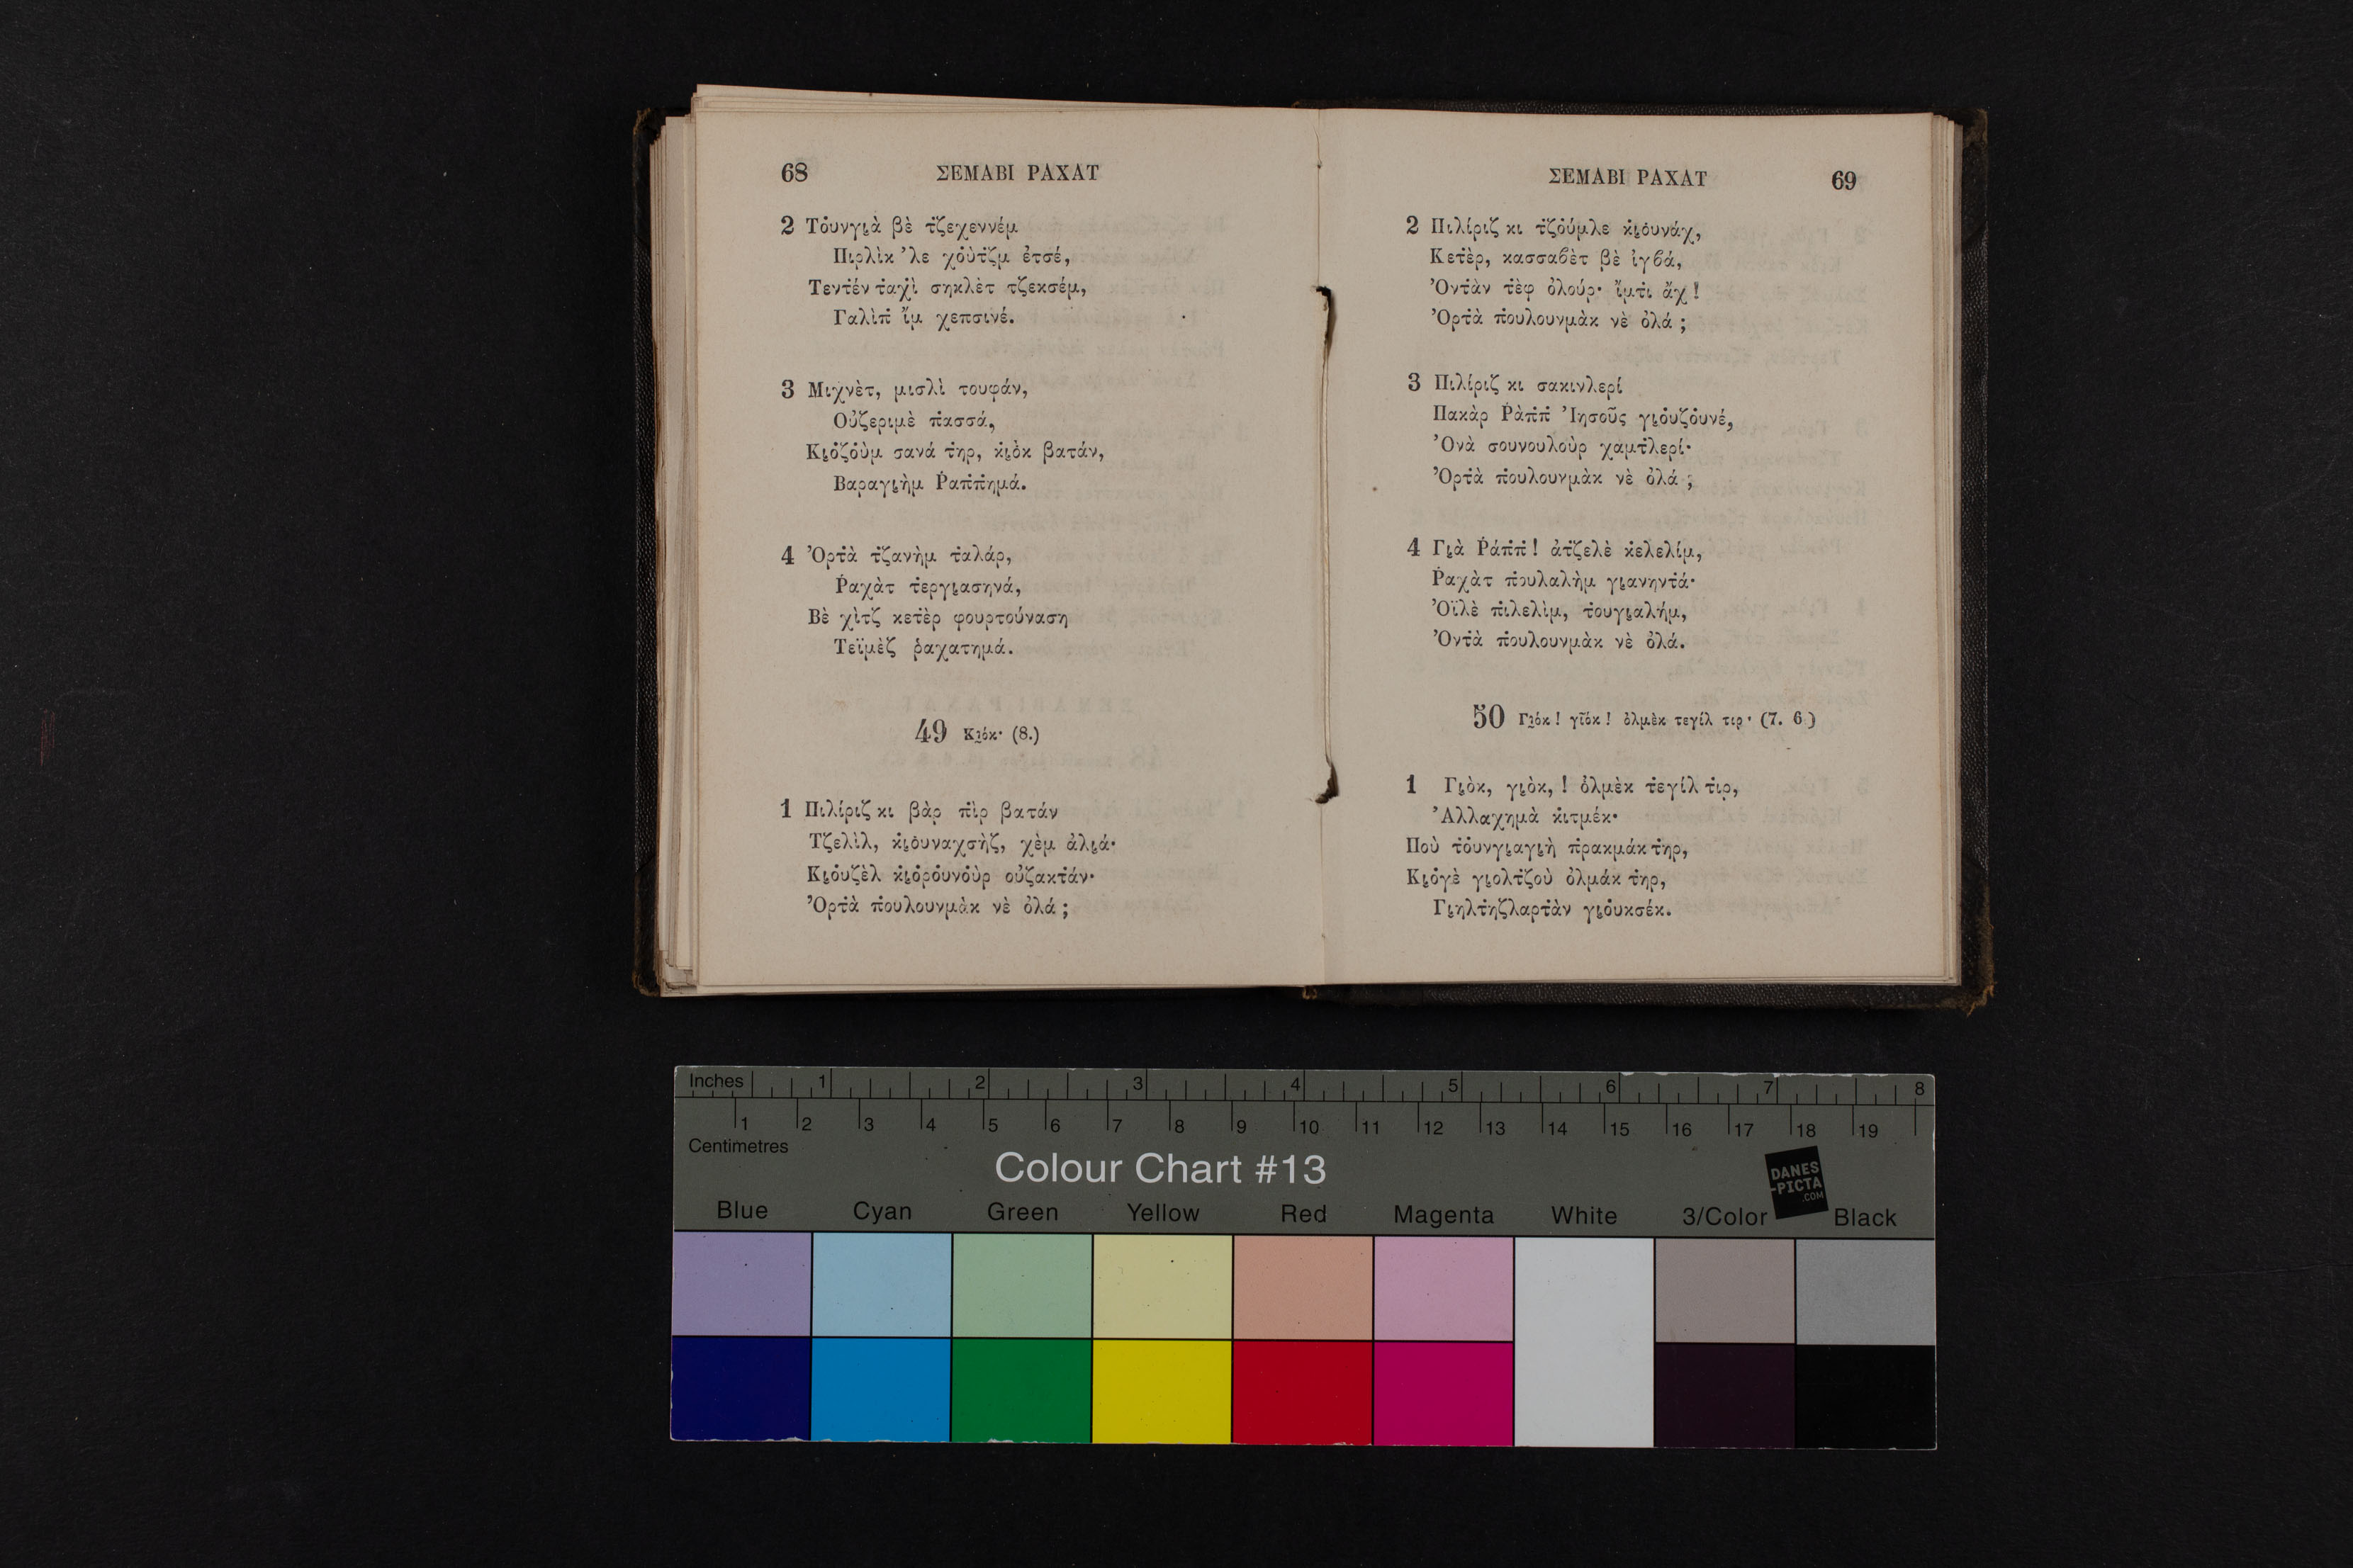 68 ΣΕΜΑΒΙ ΡΑΧΑΤ
2 Τὀυνγι̮ὰ βὲ τ̇ζεχεννέμ
Πιρλὶκ ’λε χὀὺτ̇ζμ ἐτσέ,
Τεντ̇έν τ̇αχὶ σηκλὲτ τζεκσέμ,
Γαλὶπ̇ ἴμ χεπσινέ.
3 Μιχνὲτ, μισλὶ τουφάν,
Οὐζεριμὲ π̇ασσά,
Κι̮ὀζὀὺμ σανά τ̇ηρ, κ̇ι̮ὸκ βατάν,
Βαραγι̮ὴμ Ῥαπ̇π̇ημά.
4 Ὀρτ̇ὰ τ̇ζανὴμ τ̇αλάρ,
Ῥαχὰτ τ̇εργι̮ασηνά,
Βὲ χὶτζ κετ̇ὲρ φουρτούναση
Τεϊμὲζ ῥαχατημά.
49 Κι̮όκ· (8.)
1 Πιλίριζ κι βὰρ π̇ὶρ βατάν
Τζελὶλ, κ̇ι̮ὀυναχσὴζ, χὲμ ἀλι̮ά·
Κι̮ὀυζὲλ κ̇ι̮ὀρὀυνὀὺρ οὐζακτ̇άν·
Ὀρτ̇ὰ π̇ουλουνμὰκ νὲ ὀλά ;
ΣΕΜΑΒΙ ΡΑΧΑΤ 69
2 Πιλίριζ κι τ̇ζὀύμλε κ̇ι̮ὀυνάχ,
Κετ̇ὲρ, κασσαβὲτ βὲ ἰγβά,
Ὀντ̇ὰν τ̇ὲφ ὀλούρ· ἴμτ̇ι ἄχ !
Ὀρτ̇ὰ π̇ουλουνμὰκ νὲ ὀλά ;
3 Πιλίριζ κι σακινλερί
Πακὰρ Ῥὰπ̇π̇ Ἰησοῦς γι̮ὀυζὀυνέ,
Ὀνὰ σουνουλοὺρ χαμτ̇λερί·
Ὀρτ̇ὰ π̇ουλουνμὰκ νὲ ὀλά ;
4 Γι̮ὰ Ῥάπ̇π̇ ! ἀτ̇ζελὲ κ̇ελελίμ,
Ῥαχὰτ π̇ουλαλὴμ γι̮ανηντ̇ά·
Ὀϊλὲ π̇ιλελὶμ, τ̇ουγι̮αλήμ,
Ὀντ̇ὰ π̇ουλουνμὰκ νὲ ὀλά.
50 Γι̮όκ ! γῖόκ ! ὀλμὲκ τεγίλ τιρ· (7. 6 )
1 Γι̮ὸκ, γι̮ὸκ, ! ὀλμὲκ τ̇εγίλ τ̇ιρ,
Ἀλλαχημὰ κ̇ιτμέκ·
Ποὺ τ̇ὀυνγι̮αγι̮ὴ π̇ρακμάκ τ̇ηρ,
Κι̮ὀγὲ γι̮ολτ̇ζοὺ ὀλμάκ τ̇ηρ,
Γι̮ηλτ̇ηζλαρτ̇ὰν γι̮ὀυκσέκ.
Inches 1 2 3 4 5 6 7 8
1 2 3 4 5 6 7 8 9 10 11 12 13 14 15 16 17 18 19
Centimetres
Colour Chart #13
DANES
-PICTA
.COM
Blue Cyan Green Yellow Red Magenta White 3/Color Black